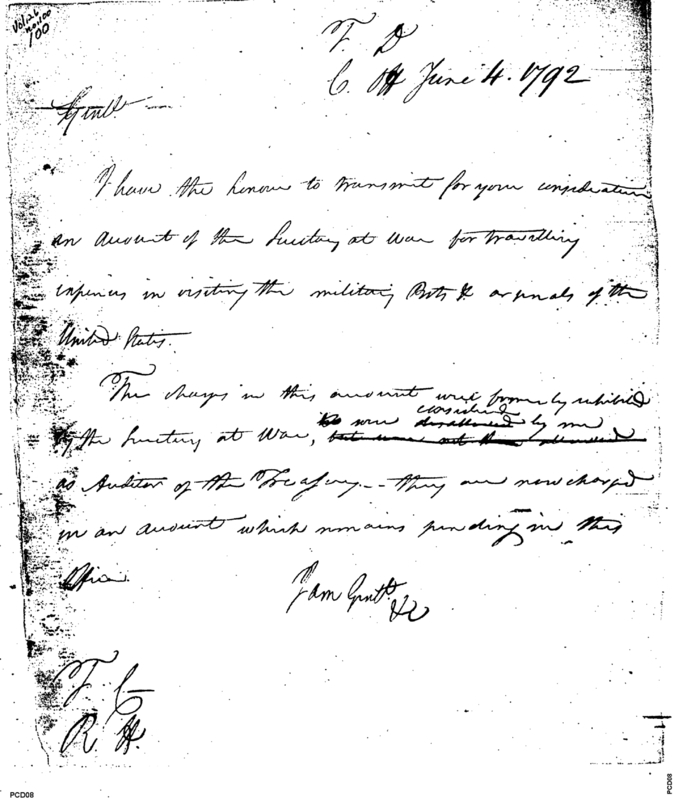 T D
C. H June 4. 1792
Gentn
I have the honour to transmit for your consideration
an account of the Secretary at War for travelling
expences in visiting the military Posts & arsenals of the
United States.
The charges in this account were formerly exhibited
considered
by the Secretary at War, were disallowed by me
as Auditor of the Treasury -- they are now charged
in an account which remains pending in this
Office.
I am Gentn.
&c
T C
R. H.
100
PCD08
PCD08